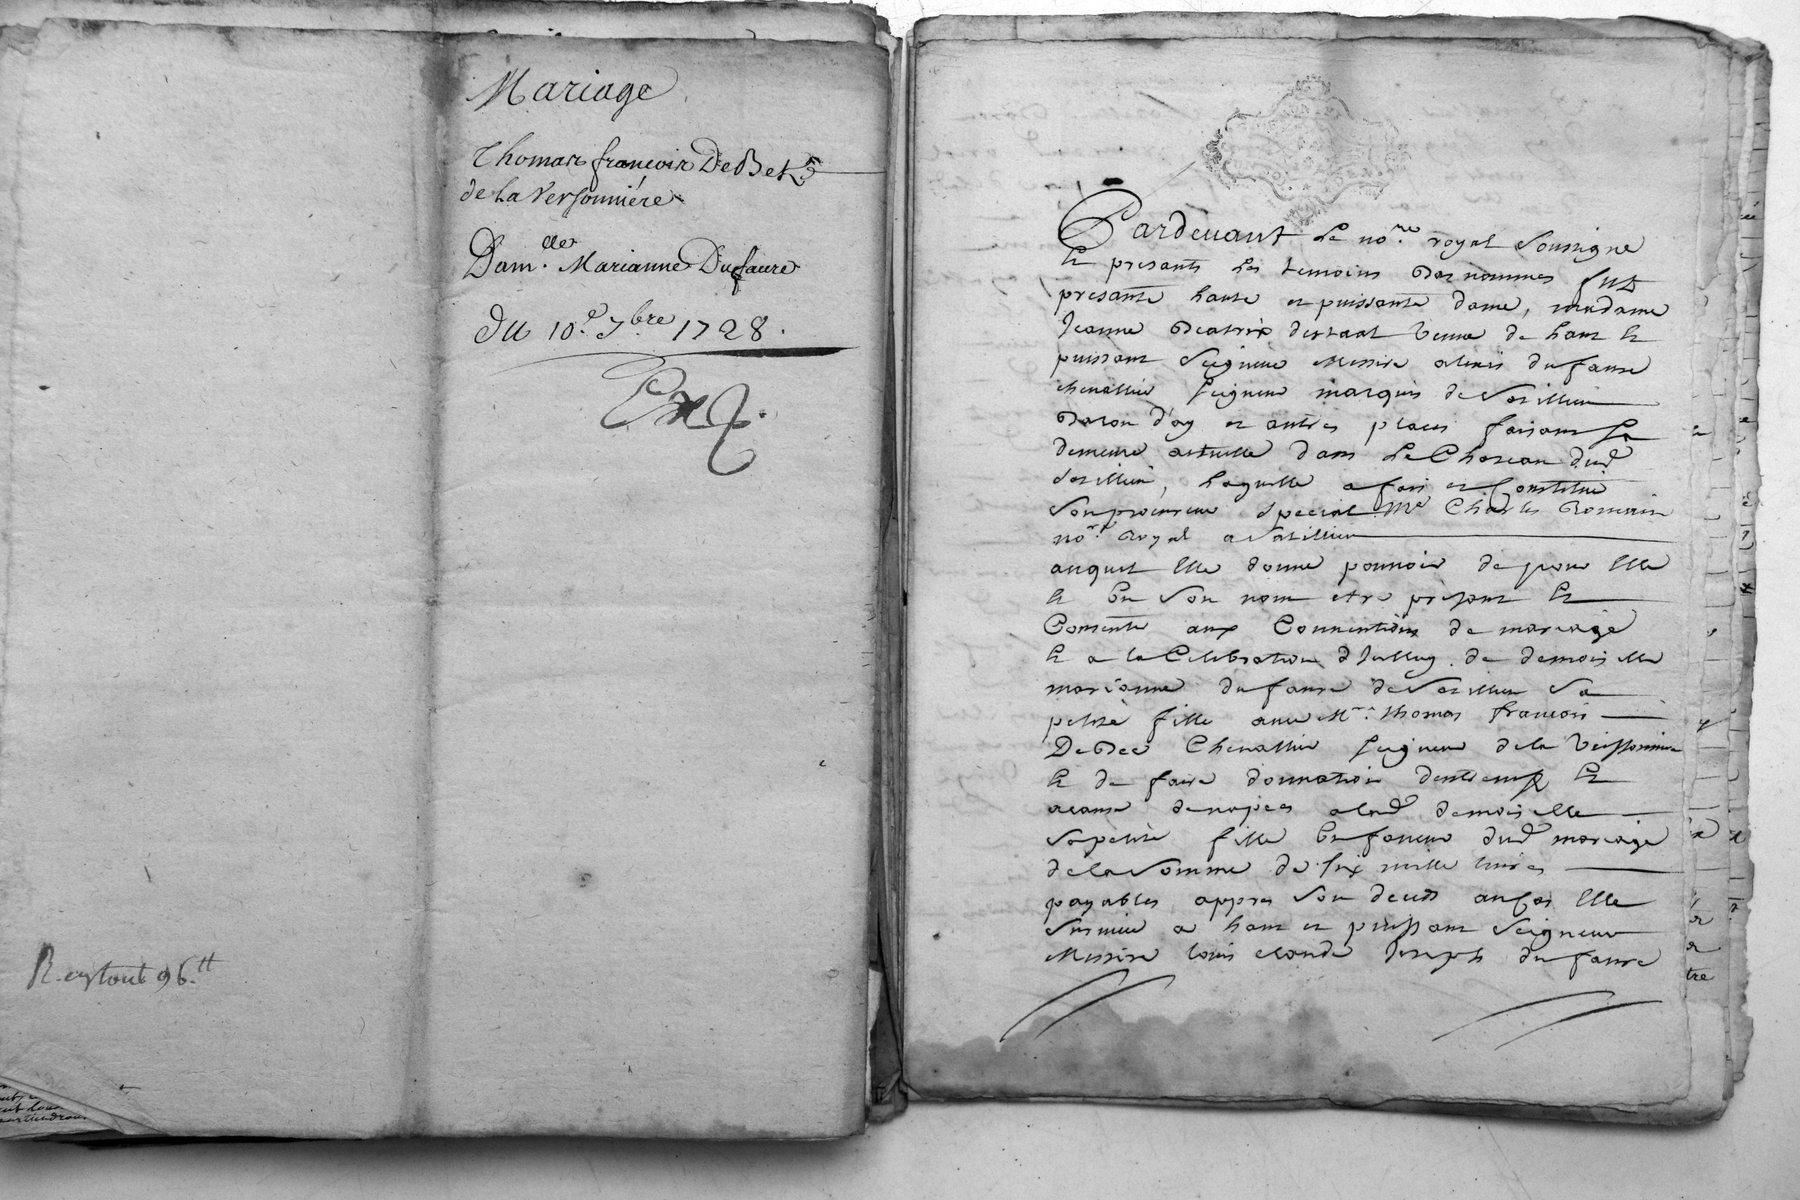 Mariage
Thomas francois De Bets
de la Versonniére
Dam.lle Marianne Dufaure
du 10.e 7bre 1728.
Ext.
R. en tout 96.tt
Pardevant le no.re royal soussigne
et presants les temoins bas nommes fut
presante haute et puissante dame, madame
Jeanne Beatrix veuve de haut et
puissant seigneur Messire alexis dufaure
chevallier seigneur marquis de Satillieu
Baron d'ay et autres places faisant sa
demeure actuelle dans le Chateau dud
Satillieu, laquelle a fait et Constitué
son procureur special Me Charles Romain
no.re Royal a Satillieu
auquel elle donne pouvoir de pour elle
et en son nom etre present et
Consente aux Conventions de mariage
et a la Celebration d'Icelluy de demoiselle
marianne dufaure de Satillieu sa
petite fille avec Mr. thomas francois
De Bec Chevallier seigneur de la Veissonniere
et de faire donnation et
a cause de nopces a lad demoiselle
sa petite fille en faveur dud mariage
de la somme de six mille livres
payables appres son deces au cas elle
survive a haut et puissant Seigneur
Messire louis claude Joseph dufaure
tre